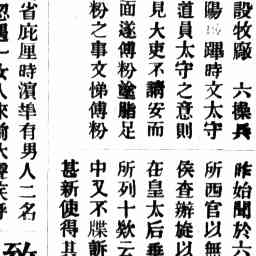 設牧廠 六操兵
陽躧時文太守
道員太守之意則
見大吏不請安而
面遂傅粉塗脂足
粉之事文悌傅粉
昨始聞於六
所西官以無
侯查辦旋以
在皇太后垂
所列十欵云
中又不牒訢
甚新使得其
省庇厘時濱準有男人二名
一女人來
致